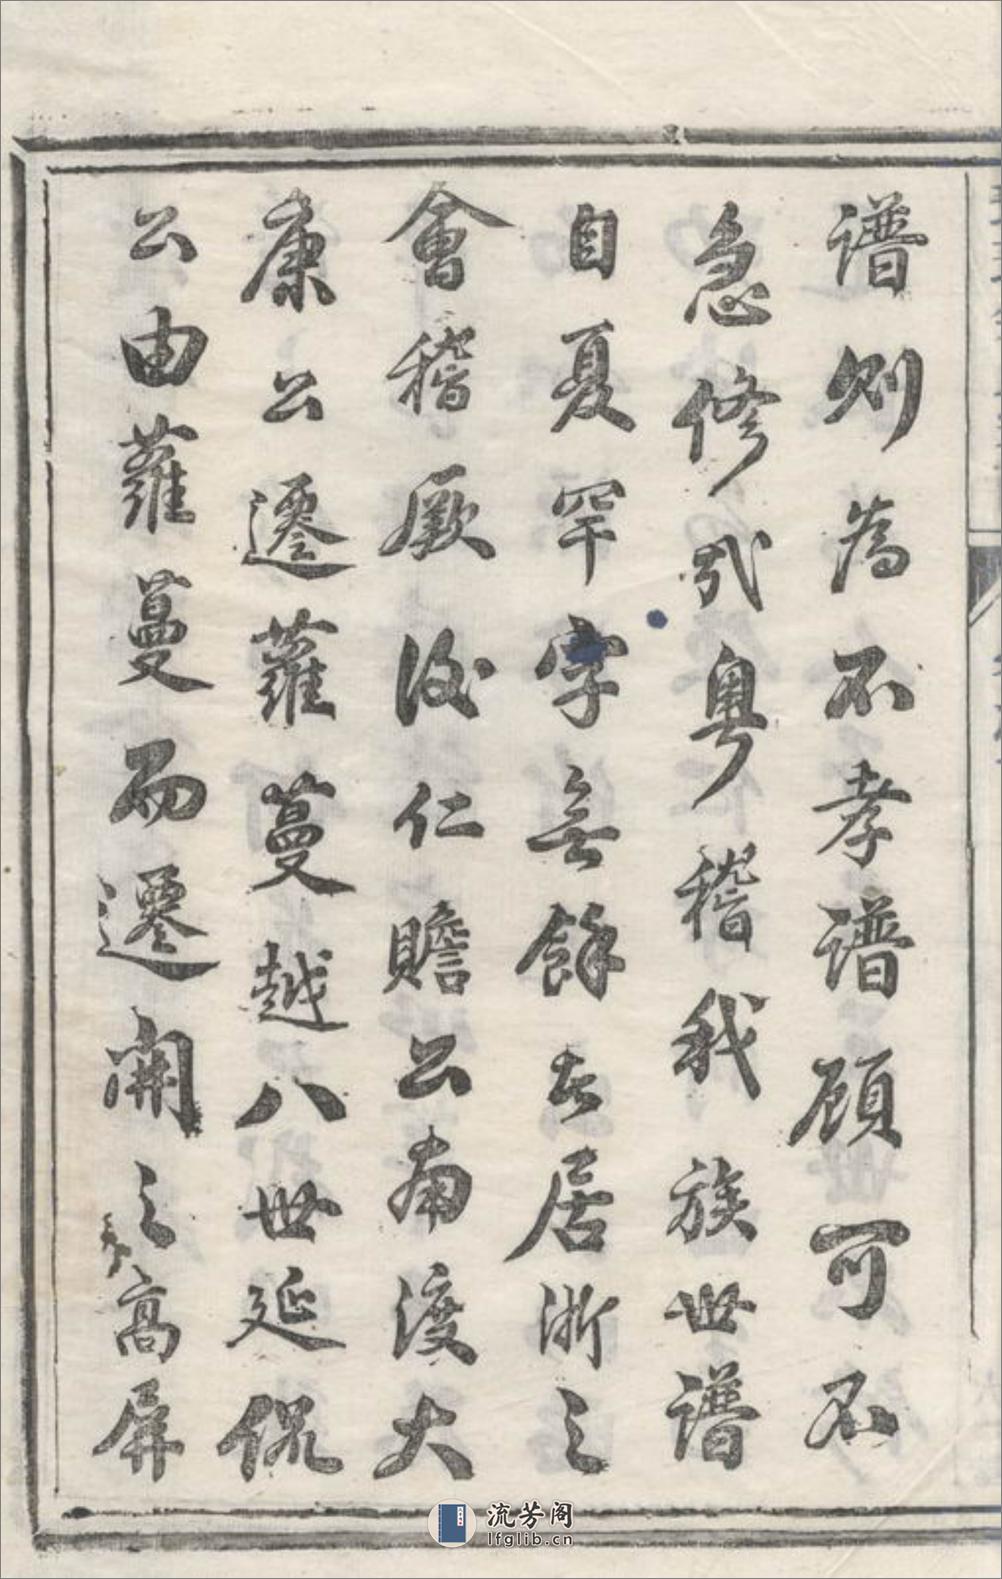 譜則為不孝譜顧可不
急修哉粤稽我族世譜
自夏罕字無餘者居浙之
會稽厥後仁贍公南渡大
康公遷蘿蔓越八世延侃
公由蘿蔓而遷開之高屏
流芳阁
lfglib.cn